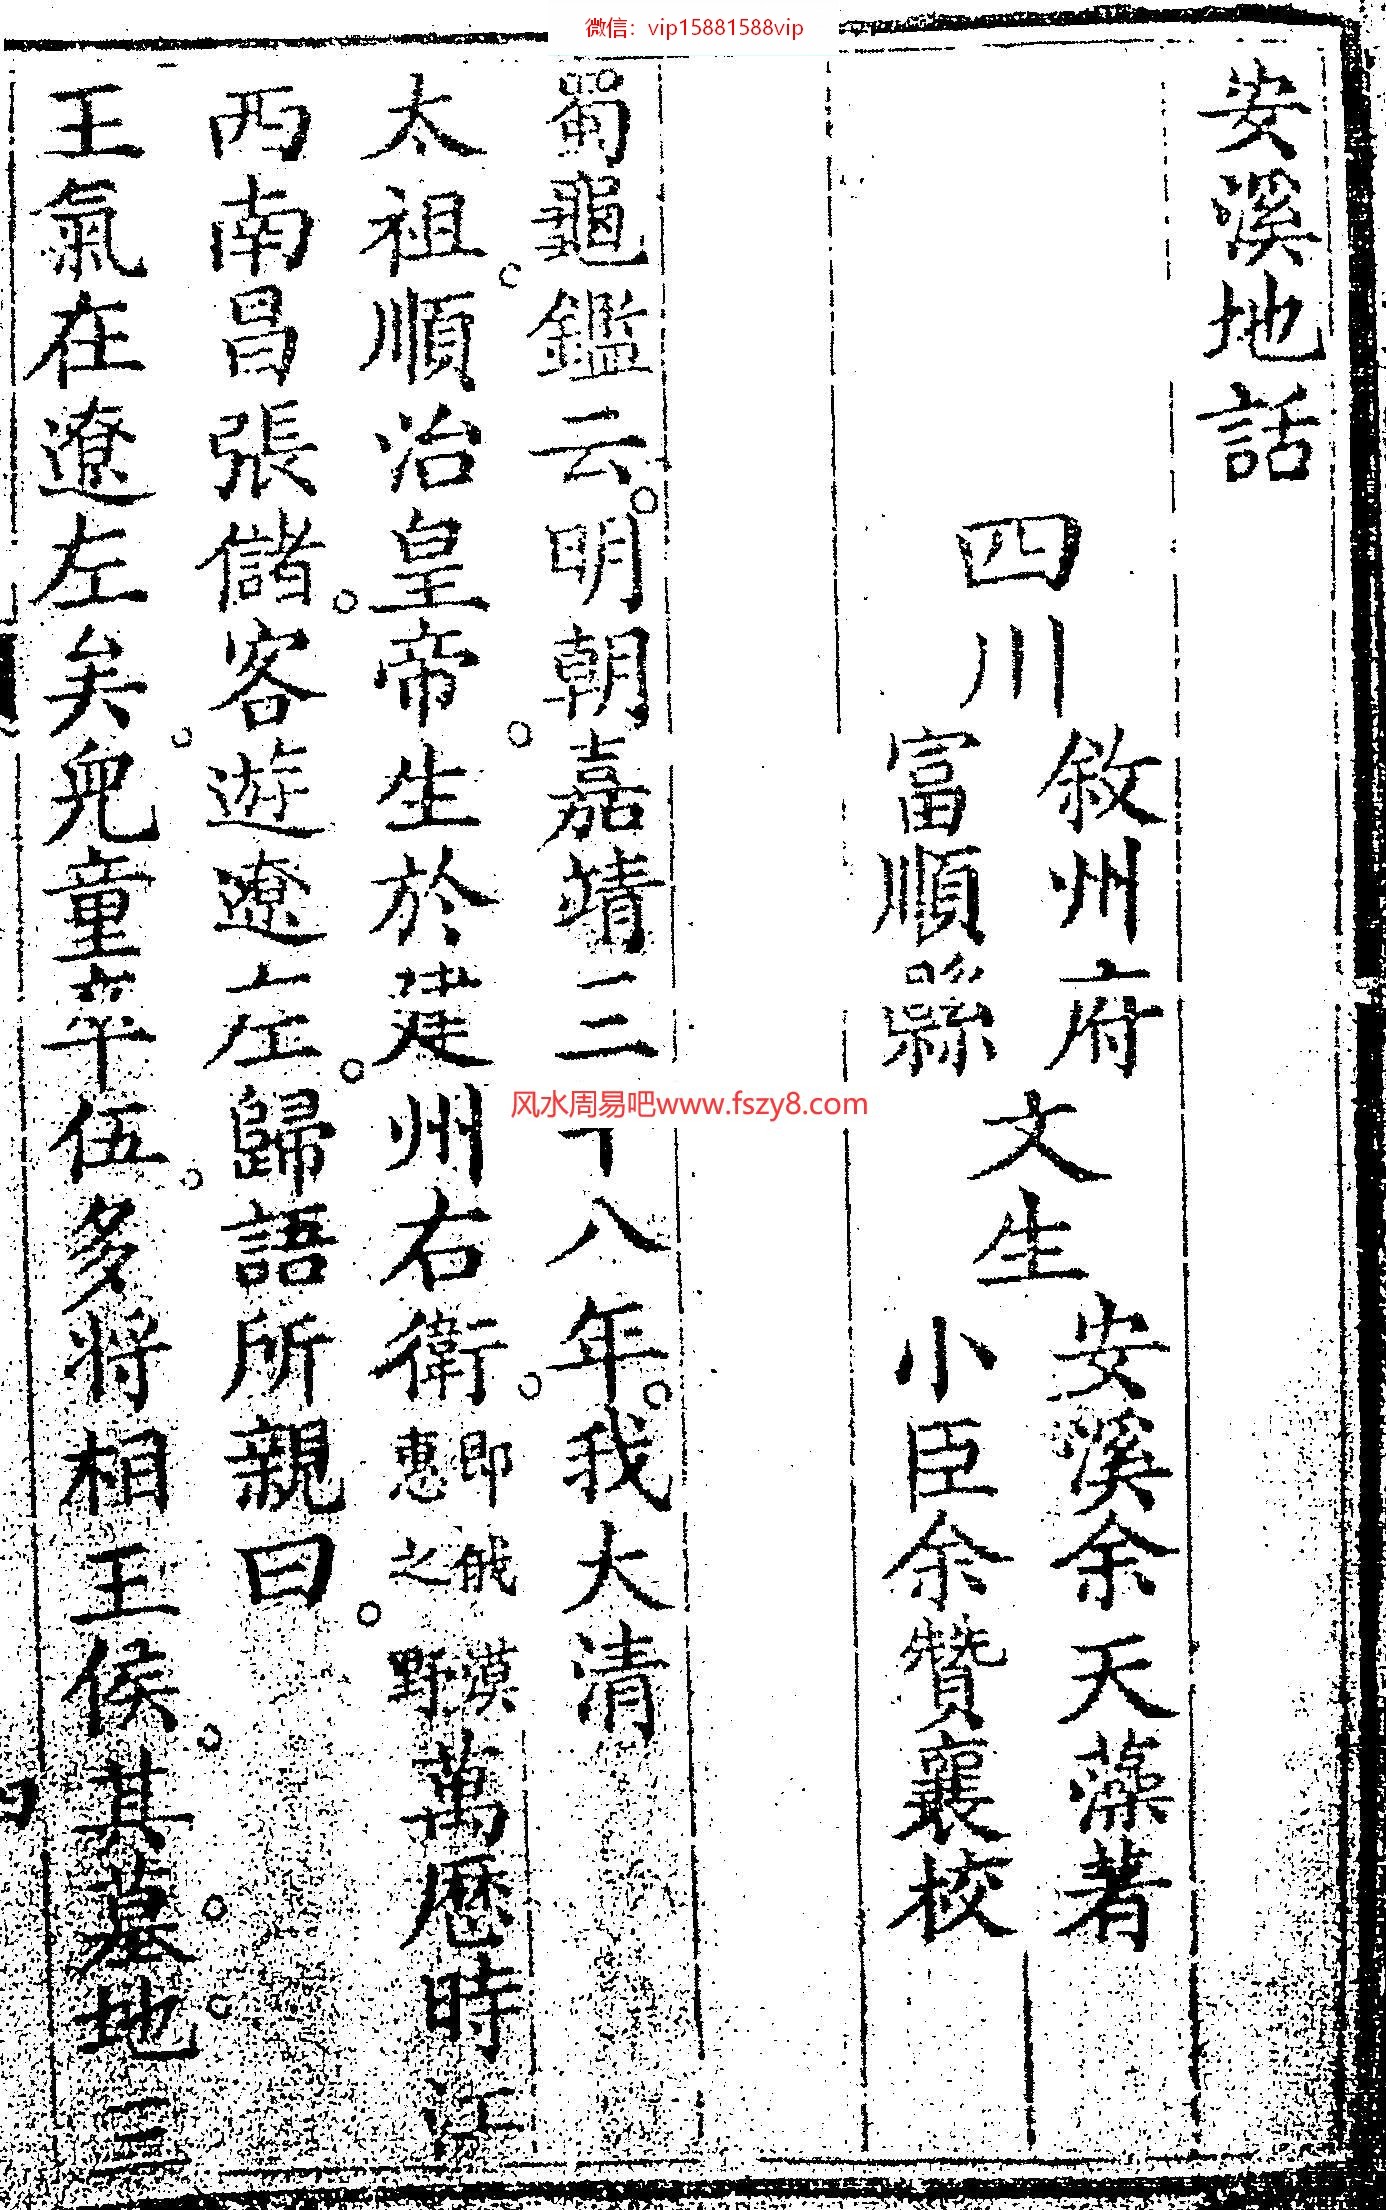 微信：vip15881588vip
安溪地話
四川
敘州府
富順縣
文生
安溪余天藻著
小臣余贊襄校
蜀龜鑑云。明朝嘉靖三十八年。我大清
太祖順治皇帝生於建州右衛。即俄漠惠之野萬歷時江
西南昌張儲。客遊遼左。歸語所親曰。
王氣在遼左矣。兒童卒伍。多將相王侯。其墓地三
风水周易吧www.fszy8.com